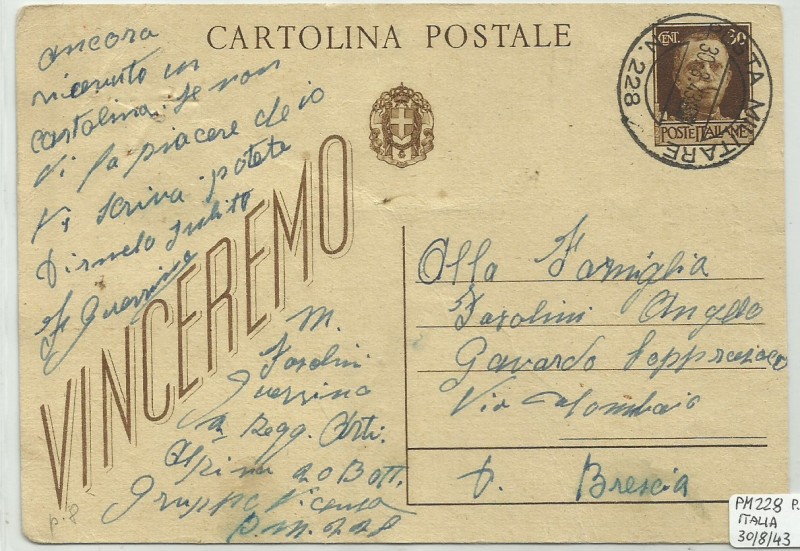 CARTOLINA POSTALE
CENT. 30
POSTE ITALIANE
POSTA MILITARE
N. 228
30.8.43
ancora
ricevuto un
cartolina. Se non
Vi fa piacere che io
Vi scriva potete
Dirmelo subito
Guerrino
VINCEREMO
M.
Fasolini
Guerrino
2 Regg. Arti.
Alpina 20 Batt.
Gruppo Vicenza
P.M. 228
Alla Famiglia
Fasolini Angelo
Gavardo Sopraponte
Via
P. Brescia
p. 8
PM228 P.
ITALIA
30/8/43